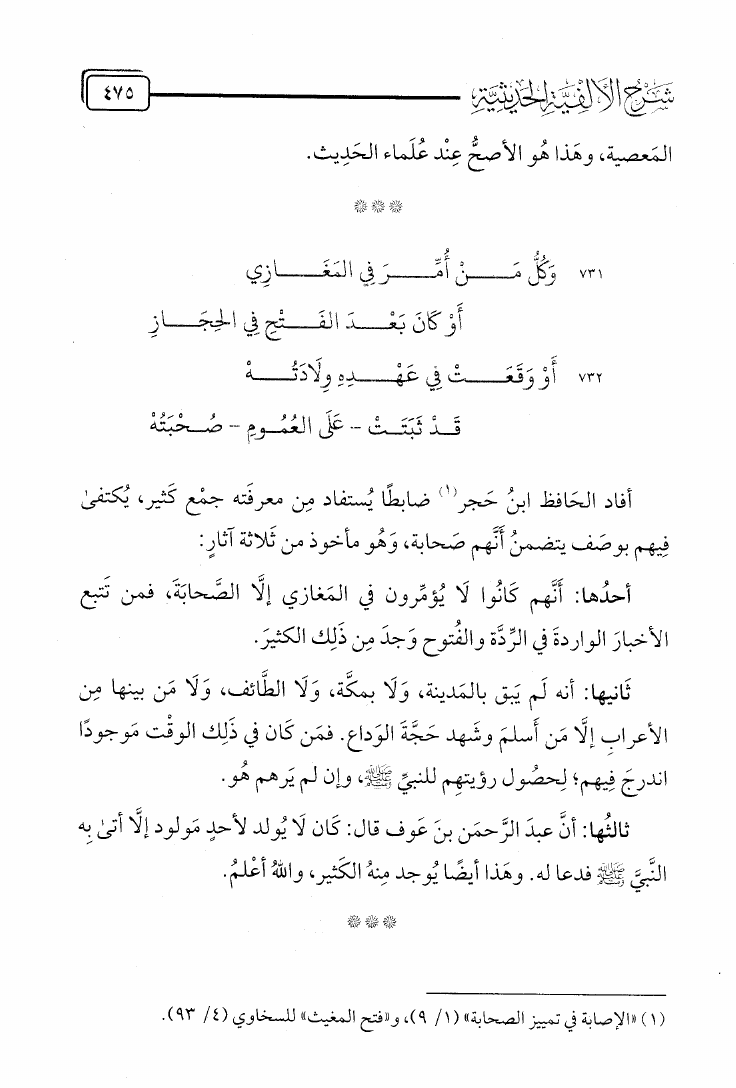 شَرْحُ الأَلْفِيَّةِ الحَدِيثِيَّةِ
٤٧٥
المَعصية، وهَذا هُو الأصحُّ عِنْد عُلَماء الحَدِيث.
٧٣١ وَكُلُّ مَـــنْ أُمِّـــرَ فِي المَغَـــازِي
أَوْ كَانَ بَعْـــدَ الفَـــتْحِ فِي الحِجَـــازِ
٧٣٢ أَوْ وَقَعَـــتْ فِي عَهْـــدِهِ وِلَادَتُـــهْ
قَـدْ ثَبَتَـتْ - عَلَى العُمُـومِ - صُـحْبَتُهْ
أفاد الحَافظ ابنُ حَجر(١) ضابطًا يُستفاد مِن معرفَته جمْع كَثير، يُكتفىٰ
فِيهم بوصَف يتضمنُ أنَّهم صَحابة، وَهُو مأخوذ من ثَلاثة آثارٍ:
أحدُها: أنَّهم كَانُوا لَا يُؤمِّرون في المَغازي إلَّا الصَّحابَةَ، فمن تَتبع
الأخبارَ الواردةَ في الرِّدَّة والفُتوح وَجدَ مِن ذَلِك الكثيرَ.
ثَانيها: أنه لَم يَبق بالمَدينة، وَلَا بمكَّة، وَلَا الطَّائف، وَلَا مَن بينها مِن
الأعرابِ إلَّا مَن أَسلمَ وشَهد حَجَّةَ الوَداع. فمَن كَان في ذَلِك الوقْت مَوجودًا
اندرجَ فِيهم؛ لِحصُول رؤيتِهم للنبيِّ ﷺ، وإن لم يَرهم هُو.
ثالثُها: أنَّ عبدَ الرَّحمَن بنَ عَوف قال: كَان لَا يُولد لأحدٍ مَولود إلَّا أتىٰ بِه
النَّبيَّ ﷺ فدعا له. وهَذا أيضًا يُوجد مِنهُ الكَثير، واللهُ أعْلمُ.
(١) «الإصابة في تمييز الصحابة» (١/ ٩)، و«فتح المغيث» للسخاوي (٤/ ٩٣).